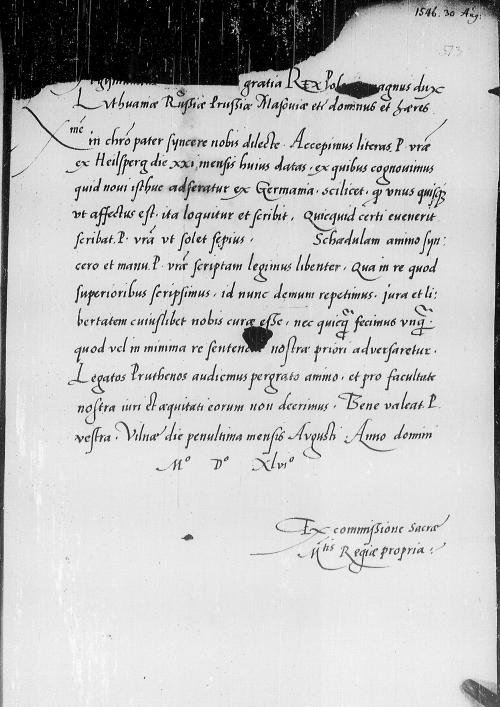 1546. 30 Aug:
573
gratia Rex Pol magnus dux
Lythuaniæ Russiæ Prussiæ Masouiæ etc dominus et hæres
in chro pater syncere nobis dilecte. Accepimus literas P. vrãe
ex Heilsperg die xxi mensis huius datas, ex quibus cognouimus
quid noui isthuc adferatur ex Germania, scilicet, qp vnus quisqz
vt affectus est, ita loquitur et scribit, Quicquid certi euenerit
scribat P. vrã vt solet sepius. Schædulam animo syn:
cero et manu P. vræ scriptam legimus libenter, Qua in re quod
superioribus scripsimus, id nunc demum repetimus, jura et li:
bertatem cuiuslibet nobis curæ esse, nec quicq fecimus vnq:
quod vel in minima re sentenc nostræ priori aduersaretur.
Legatos Pruthenos audiemus pergrato animo, et pro facultate
nostra iuri et æquitati eorum non deerimus. Bene valeat P.
vestra. Vilnæ die penultima mensis Avgusti. Anno domini
Mº Dº Xlviº
Ex commissione Sacræ
Mtis Regiæ propria: